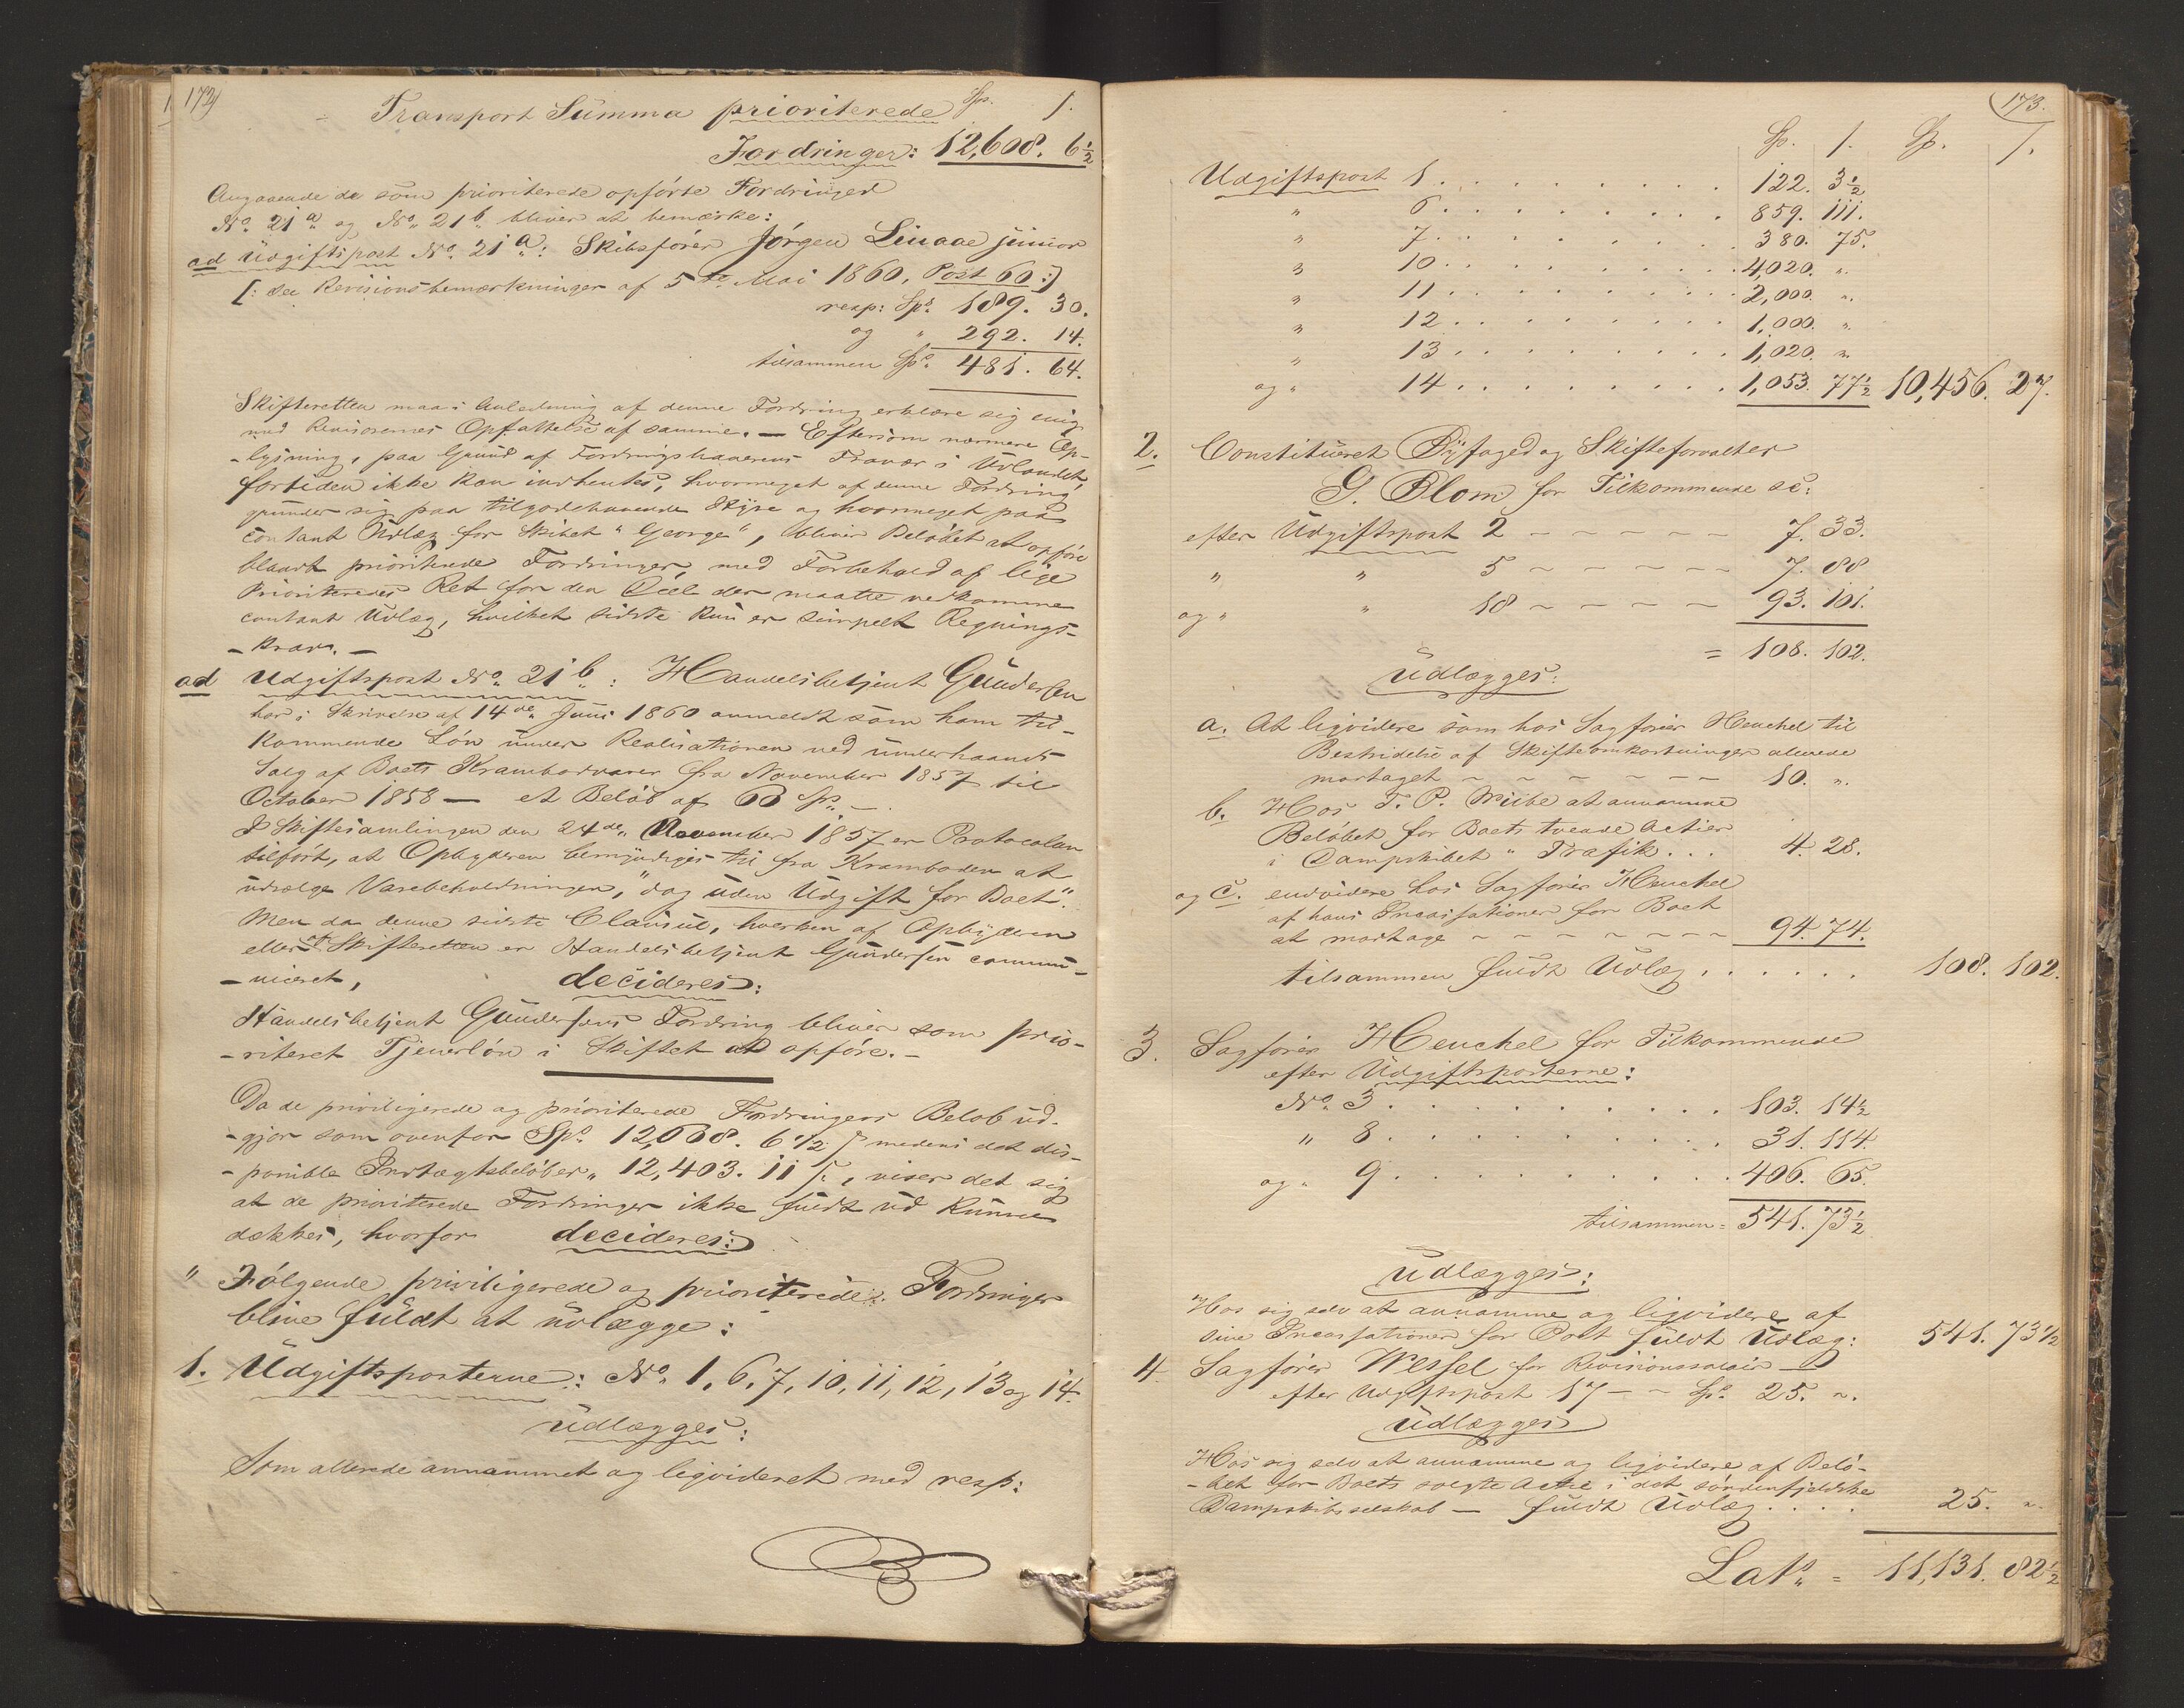 172
Transport Summa prioriterede Sp. ſ.
Fordringer: 12,608. 6½
Angaaende de som prioriterede opförte Fordringer
No. 21a og No. 21b bliver at bemærke:
ad Udgiftspost No. 21a: Skibsförer Jörgen Linaae junior
[: see Revisionsbemærkninger af 5te Mai 1860, Post 60 :]
resp: Spd. 189. 30.
og " 292. 14.
tilsammen Spd. 481. 64.
Skifteretten maa i Anledning af denne Fordring erklære sig enig
med Revisorernes Opfattelse af samme. — Eftersom nærmere Op-
-lysning, paa Grund af Fordringshaverens Fravær i Udlandet,
fortiden ikke kan indhentes, hvormeget af denne Fordring
grunder sig paa tilgodehavende Hyre og hvormeget paa
contant Udlæg for Skibet "George", bliver Belöbet at opföre
blandt prioriterede Fordringer, med Forbehold af lige
Prioriteredes Ret for den Deel der maatte vedkomme
contant Udlæg, hvilket sidste kun er simpelt Regnings-
-krav. —
ad Udgiftspost No. 21b: Handelsbetjent Gundersen
har i Skrivelse af 14de Juni 1860 anmeldt som ham til-
kommende Lön under Realisationen ved underhaands
Salg af Boets Krambodvarer fra November 1857 til
October 1858 — et Belöb af 60 Spd. —
I Skiftesamlingen den 24de November 1857 er Protocolen
tilfört, at Opbyderen bemyndiges til fra Kramboden at
udsælge Varebeholdningen, "dog uden Udgift for Boet".
Men da denne sidste Clausul, hverken af Opbyderen
eller af Skifteretten er Handelsbetjent Gundersen commu-
-niceret, decideres:
Handelsbetjent Gundersens Fordring bliver som prio-
-riteret Tjenerlön i Skiftet at opföre. —
Da de priviligerede og prioriterede Fordringers Belöb ud-
-gjör som ovenfor Spd. 12,608. 6½ ſ medens det dis-
-ponible Indtægtsbelöb er " 12,403. 11 ſ, viser det sig
at de prioriterede Fordringer ikke fuldt ud kunne
dækkes, hvorfor decideres:
" Fölgende priviligerede og prioriterede Fordringer
blive fuldt at udlægge:
1. Udgiftsposterne: No. 1, 6, 7, 10, 11, 12, 13 og 14.
Udlægges:
Som allerede annammet og liqvideret med resp:
173.
Sp. ſ. Sp. ſ.
Udgiftspost 1 . . . . . . . . 122. 3½
" 6 . . . . . . . . 859. 111.
" 7 . . . . . . . . 380. 75.
" 10 . . . . . . . . 4,020. "
" 11 . . . . . . . . 2,000. "
" 12 . . . . . . . . 1,000. "
" 13 . . . . . . . . 1,020. "
og " 14 . . . . . . . . 1,053. 77½ 10,456. 27.
2. Constitueret Byfoged og Skifteforvalter
G. Blom for Tilkommende sc:
efter Udgiftspost 2 - - - - - 7. 33.
" " 5 - - - - - 7. 88
og " " 18 - - - - - 93. 101.
= 108. 102.
Udlægges:
a. At liqvidere som hos Sagförer Heuchel til
Bestridelse af Skifteomkostninger allerede
modtaget - - - - - - 10. "
b. Hos T. P. Wiibe at annamme
Belöbet for Boets tvende Actier
i Dampskibet "Trafik. . . 4. 28.
og c. endvidere hos Sagförer Heuchel
af hans Incassationer for Boet
at modtage - - - - - - - 94. 74.
tilsammen fuldt Udlæg. . . . . . 108. 102.
3. Sagförer Heuchel for Tilkommende
efter Udgiftsposterne:
No. 3 . . . . . . . . . 103. 14½
" 8 . . . . . . . . . 31. 114.
og " 9 . . . . . . . . . 406. 65.
tilsammen = 541. 73½
Udlægges:
Hos sig selv at annamme og liqvidere af
sine Incassationer for Boet fuldt Udlæg: 541. 73½
4. Sagförer Wessel for Revisionssalair
efter Udgiftspost 17 - - Spd. 25. "
Udlægges
Hos sig selv at annamme og liqvidere af Belö-
-bet for Boets solgte Actie i det söndenfjeldske
Dampskibsselskab — fuldt Udlæg. . . . 25. "
Lat. = 11,131. 82½